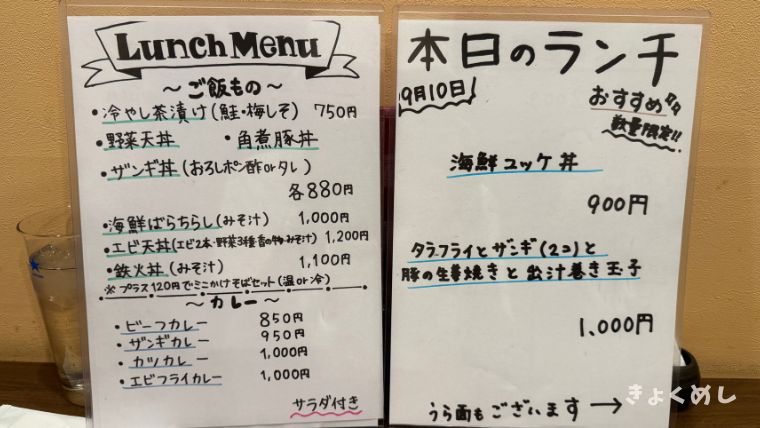 Lunch Menu
〜ご飯もの〜
・冷やし茶漬け(鮭・梅しそ) 750円
・野菜天丼 ・角煮豚丼
・ザンギ丼(おろしポン酢orタレ)
各880円
・海鮮ばらちらし(みそ汁) 1,000円
・エビ天丼(エビ2本・野菜3種・香の物・みそ汁) 1,200円
・鉄火丼(みそ汁) 1,100円
※プラス120円でミニかけそばセット(温or冷)
〜カレー〜
・ビーフカレー 850円
・ザンギカレー 950円
・カツカレー 1,000円
・エビフライカレー 1,000円
サラダ付き
本日のランチ
9月10日
おすすめ
数量限定!!
海鮮ユッケ丼
900円
タラフライとザンギ(2コ)と
豚の生姜焼きと出汁巻き玉子
1,000円
うら面もございます→
きょくめし